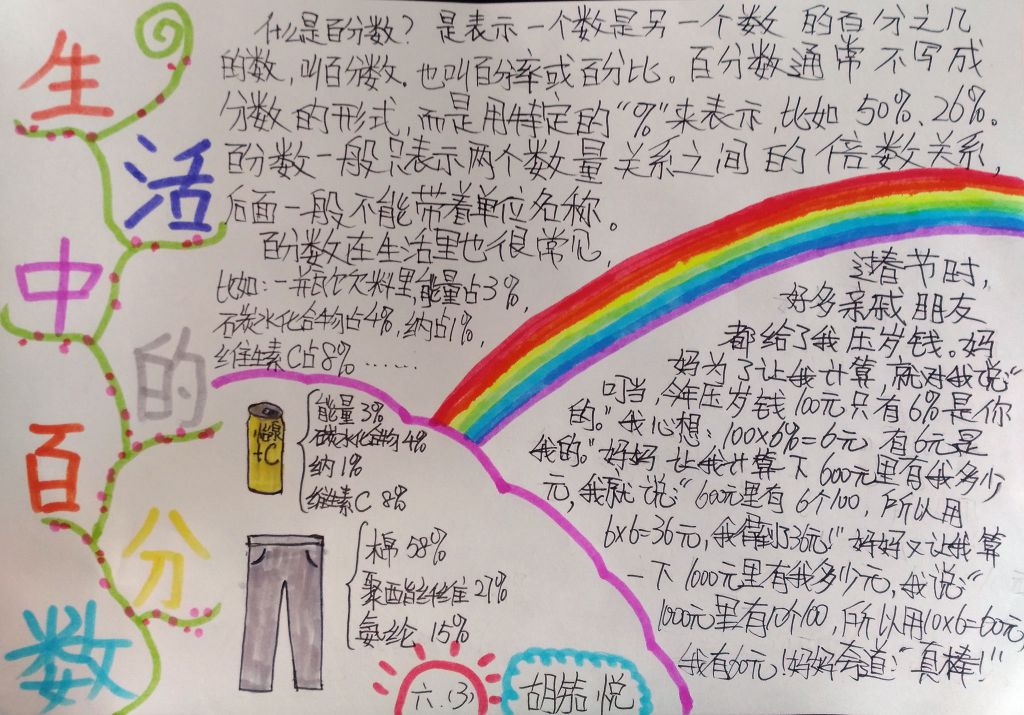 生活中的百分数
什么是百分数？是表示一个数是另一个数的百分之几
的数，叫百分数.也叫百分率或百分比。百分数通常不写成
分数的形式，而是用特定的"%"来表示，比如50%、26%。
百分数一般只表示两个数量关系之间的倍数关系，
后面一般不能带着单位名称。
百分数在生活里也很常见，
比如：一瓶饮料里，能量占3%，
石炭水化合物占4%，纳占1%，
维生素C占8%……
+C
能量 3%
石炭水化合物 4%
纳 1%
维生素C 8%
棉 58%
聚酯纤维 27%
氨纶 15%
过春节时，
好多亲戚朋友
都给了我压岁钱。妈
妈为了让我计算，就对我说："
叮当，今年压岁钱100元只有6%是你
的。"我心想：100×6%=6元，有6元是
我的。"妈妈让我计算一下600元里有我多少
元，我就说："600元里有6个100，所以用
6×6=36元，我得到36元！"妈妈又让我算
一下1000元里有我多少元，我说："
1000元里有10个100，所以用10×6=60元，
我有60元！妈妈夸道："真棒！"
六.(3)
胡恭悦